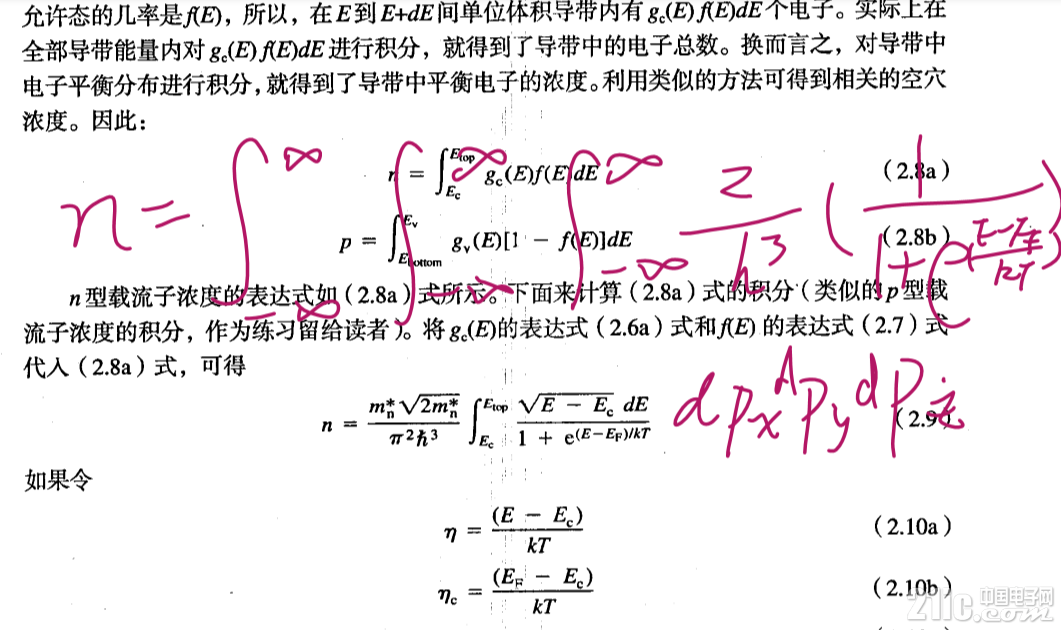 允许态的几率是f(E)，所以，在E到E+dE间单位体积导带内有g_c(E)f(E)dE个电子。实际上在
全部导带能量内对g_c(E)f(E)dE进行积分，就得到了导带中的电子总数。换而言之，对导带中
电子平衡分布进行积分，就得到了导带中平衡电子的浓度。利用类似的方法可得到相关的空穴
浓度。因此：
n = ∫_{E_c}^{E_top} g_c(E)f(E)dE （2.8a）
n = ∫_{-∞}^{∞} ∫_{-∞}^{∞} ∫_{-∞}^{∞} 2/h^3 (1/(1+e^{(E-F_F)/kT})
p = ∫_{E_bottom}^{E_v} g_v(E)[1 − f(E)]dE （2.8b）
n型载流子浓度的表达式如（2.8a）式所示。下面来计算（2.8a）式的积分（类似的p型载
流子浓度的积分，作为练习留给读者）。将g_c(E)的表达式（2.6a）式和f(E)的表达式（2.7）式
代入（2.8a）式，可得
n = m_n^*√(2m_n^*)/(π^2ħ^3) ∫_{E_c}^{E_top} √(E − E_c) dE/(1 + e^{(E−E_F)/kT}) （2.9）
dp_x dp_y dp_z
如果令
η = (E − E_c)/kT （2.10a）
η_c = (E_F − E_c)/kT （2.10b）
21ic 中国电子网
.com